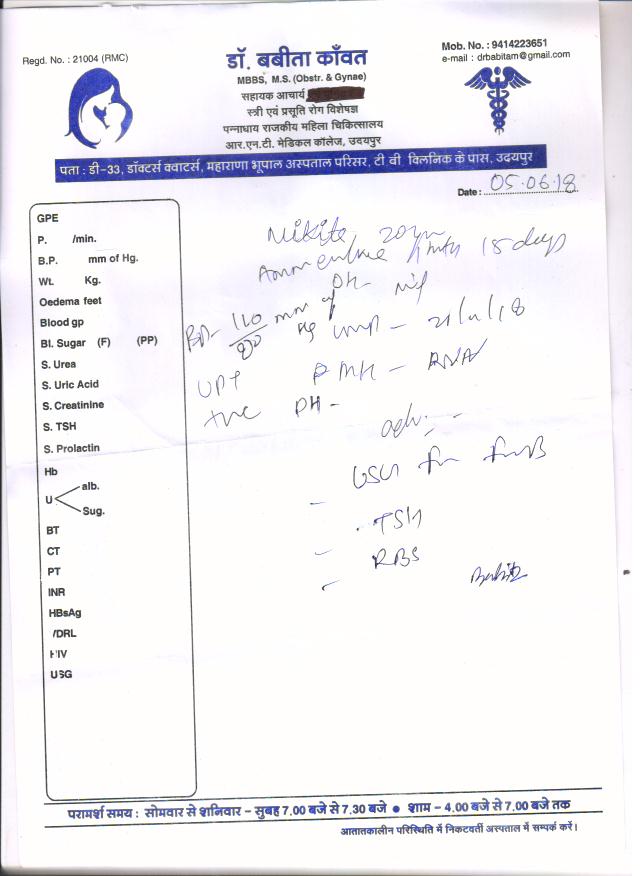 Regd. No. : 21004 (RMC)
डॉ. बबीता काँवत
MBBS, M.S. (Obstr. & Gynae)
सहायक आचार्य
स्त्री एवं प्रसूति रोग विशेषज्ञ
पन्नाधाय राजकीय महिला चिकित्सालय
आर.एन.टी. मेडिकल कॉलेज, उदयपुर
Mob. No. : 9414223651
e-mail : drbabitam@gmail.com
पता : डी-33, डॉक्टर्स क्वाटर्स, महाराणा भूपाल अस्पताल परिसर, टी बी क्लिनिक के पास, उदयपुर
Date : 05.06.18
GPE
P. /min.
B.P. mm of Hg.
Wt. Kg.
Oedema feet
Blood gp
Bl. Sugar (F) (PP)
S. Urea
S. Uric Acid
S. Creatinine
S. TSH
S. Prolactin
Hb
U alb.
Sug.
BT
CT
PT
INR
HBsAg
VDRL
HIV
USG
Nikita 20yr
1 mth 15 days
BP- 110 mm of Hg
UPT
PH -
adv. -
TSH
RBS
परामर्श समय : सोमवार से शनिवार - सुबह 7.00 बजे से 7.30 बजे ● शाम - 4.00 बजे से 7.00 बजे तक
आतातकालीन परिस्थिति में निकटवर्ती अस्पताल में सम्पर्क करें।